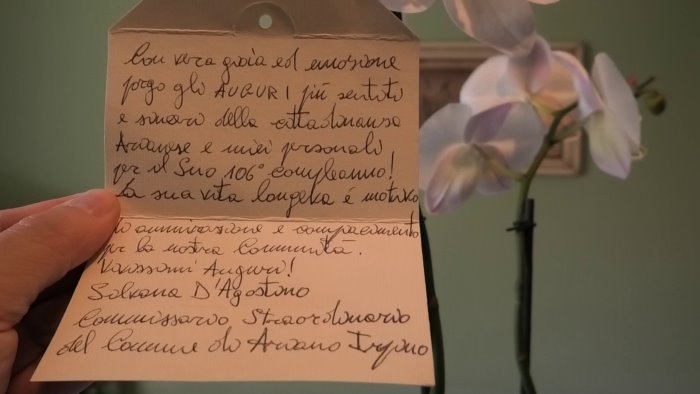 Con vera gioia ed emozione
porgo gli AUGURI più sentiti
e sinceri della cittadinanza
Arianese e miei personali
per il Suo 106° compleanno!
La sua vita longeva é motivo
di ammirazione e compiacimento
per la nostra Comunità.
Vivissimi Auguri!
Silvana D'Agostino
Commissario Straordinario
del Comune di Ariano Irpino